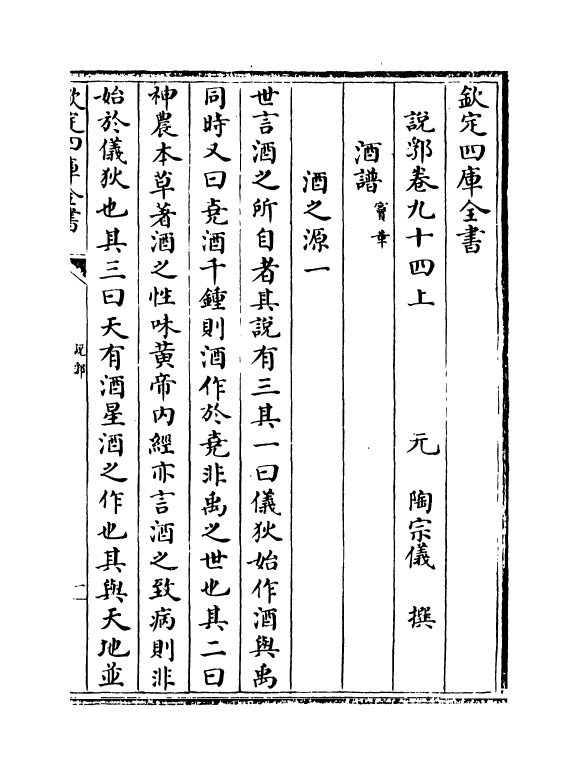 欽定四庫全書
說郛卷九十四上　元　陶宗儀　撰
酒譜　竇苹
酒之源一
世言酒之所自者其說有三其一曰儀狄始作酒與禹
同時又曰堯酒千鍾則酒作於堯非禹之世也其二曰
神農本草著酒之性味黃帝内經亦言酒之致病則非
始於儀狄也其三曰天有酒星酒之作也其與天地並
欽定四庫全書
說郛